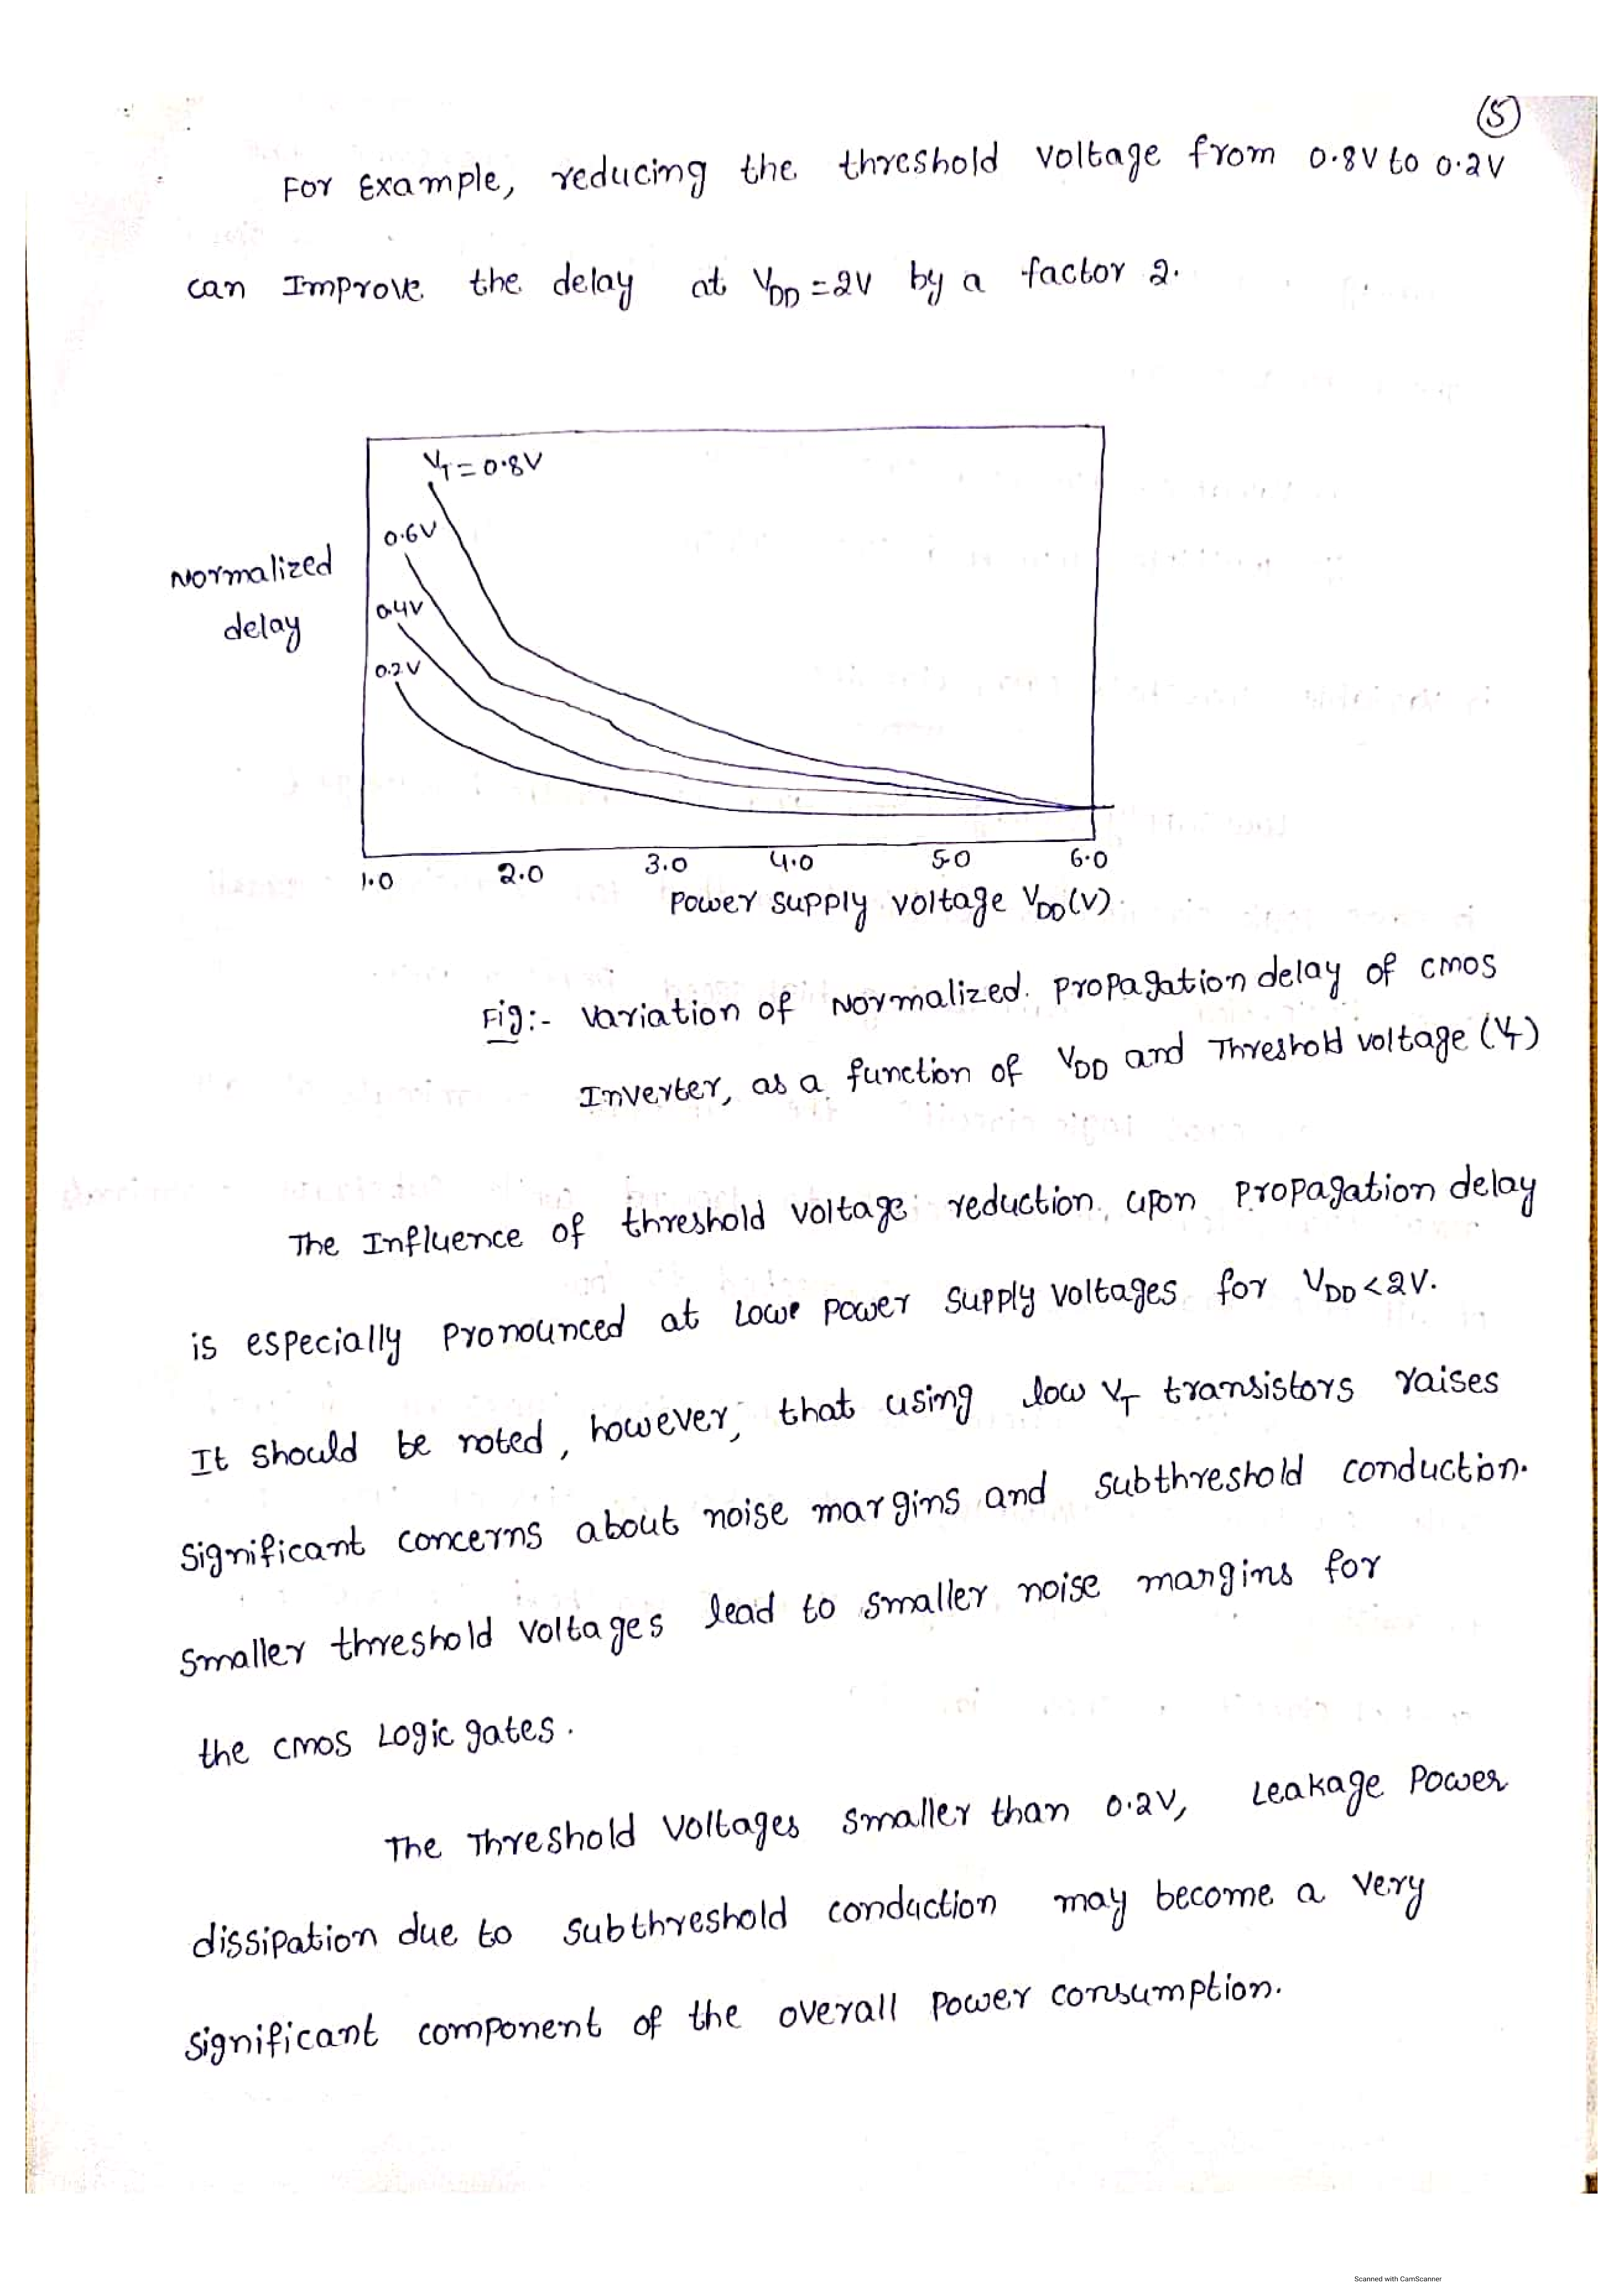 5
For Example, reducing the threshold voltage from 0.8V to 0.2V
can Improve the delay at VDD = 2V by a factor 2.
VT = 0.8V
0.6V
Normalized
delay
0.4V
0.2V
1.0 2.0 3.0 4.0 5.0 6.0
Power supply voltage VDD(V).
Fig:- Variation of Normalized. Propagation delay of CMOS
Inverter, as a function of VDD and Threshold voltage (VT)
The Influence of threshold voltage reduction upon propagation delay
is especially pronounced at Lowe power supply voltages for VDD < 2V.
It should be noted, however, that using low VT transistors raises
significant concerns about noise margins and subthreshold conduction.
Smaller threshold voltages lead to smaller noise margins for
the CMOS Logic gates.
The Threshold Voltages smaller than 0.2V, Leakage Power
dissipation due to subthreshold conduction may become a very
significant component of the overall power consumption.
Scanned with CamScanner